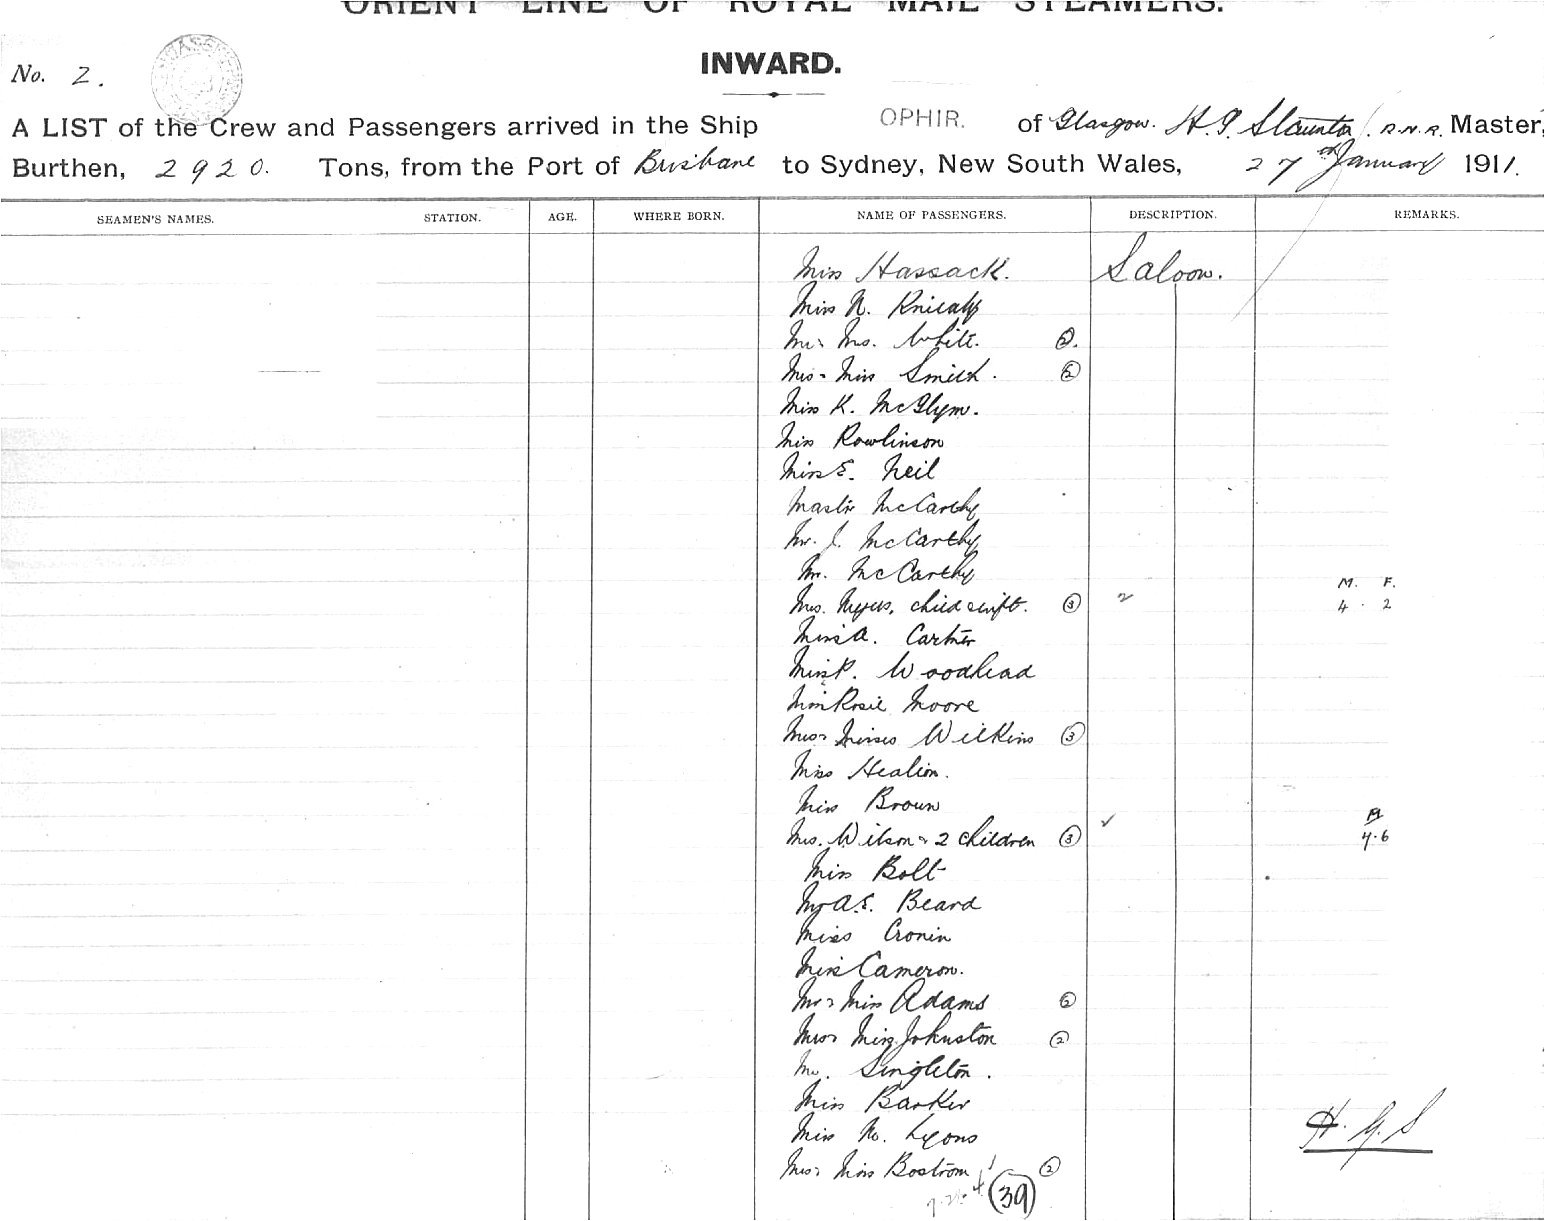 ORIENT LINE OF ROYAL MAIL STEAMERS.
INWARD.
No. 2.
A LIST of the Crew and Passengers arrived in the Ship OPHIR. of Glasgow. H. G. Staunton R.N.R. Master,
Burthen, 2920. Tons, from the Port of Brisbane to Sydney, New South Wales, 27th January 1911.
SEAMEN'S NAMES. STATION. AGE. WHERE BORN. NAME OF PASSENGERS. DESCRIPTION. REMARKS.
Miss Hassack. Saloon.
Miss N.
Mr & Mrs. White. 2.
Mrs & Miss Smith. 2
Miss K. McGlynn.
Miss Rowlinson
Miss E. Neil
Master McCarthy
Mr. J. McCarthy
Mr. McCarthy
M. F.
Mrs. Myers, child & inft. 3 2 4 . 2
Miss A. Cartner
Miss P. Woodhead
Miss Rosie Moore
Mrs & Misses Wilkins 3
Miss Healion.
Miss Broun
Mrs. Wilson & 2 children 3 4.6
Miss Bolt
Mr A.E. Beard
Miss Cronin
Miss Cameron.
Mr & Miss Adams 2
Mrs & Miss Johnston 2
Mr. Singleton.
Miss Barker
Miss M. Lyons
H. G. S
Mrs & Miss Bostrom 2
39